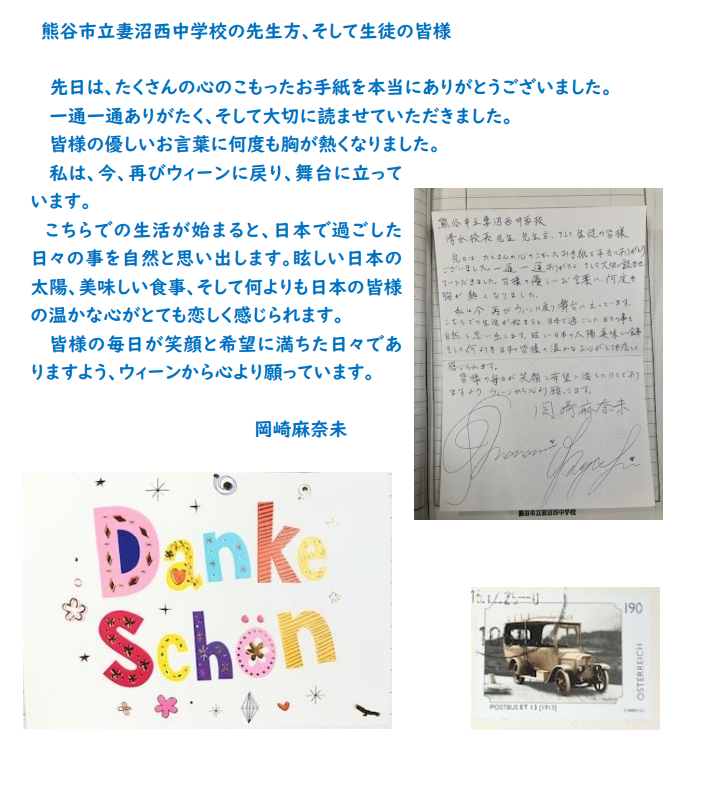 熊谷市立妻沼西中学校の先生方、そして生徒の皆様
先日は、たくさんの心のこもったお手紙を本当にありがとうございました。
一通一通ありがたく、そして大切に読ませていただきました。
皆様の優しいお言葉に何度も胸が熱くなりました。
私は、今、再びウィーンに戻り、舞台に立って
います。
こちらでの生活が始まると、日本で過ごした
日々の事を自然と思い出します。眩しい日本の
太陽、美味しい食事、そして何よりも日本の皆様
の温かな心がとても恋しく感じられます。
皆様の毎日が笑顔と希望に満ちた日々であ
りますよう、ウィーンから心より願っています。
岡崎麻奈未
熊谷市立妻沼西中学校
清水校長先生 先生方、そして生徒の皆様
先日は、たくさんの心のこもったお手紙を本当にありがとう
ございました。一通一通ありがたく、そして大切に読ませ
ていただきました。皆様の優しいお言葉に、何度も
胸が熱くなりました。
私は今、再びウィーンに戻り舞台に立っています。
こちらでの生活が始まると、日本で過ごした日々の事を
自然と思い出します。眩しい日本の太陽、美味しい食事
そして何よりも日本の皆様の温かなお心がとても恋しく
感じられます。
皆様の毎日が笑顔と希望に満ちた日々であり
ますよう ウィーンから心より願ってます。
岡崎麻奈未
熊谷市立妻沼西中学校
Danke
Schön
190
ÖSTERREICH
POSTBUS ET 13 [1912]